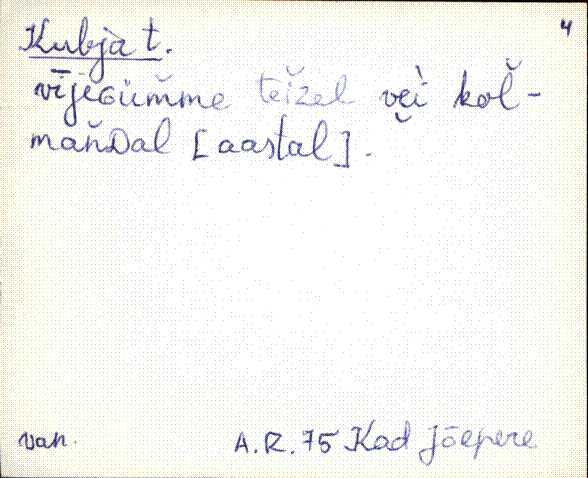 4
Kubja t.
vījeGüm̆me teĭzel vĕi kol̆-
mañDal [aastal].
van. A.R. 75 Kad Jõepere